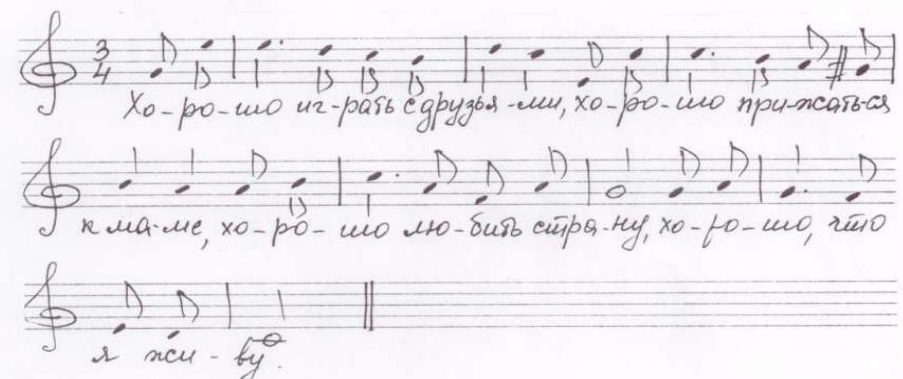 3
4
Хо-ро-шо иг-рать с друзья-ми, хо-ро-шо при-жаться
к ма-ме, хо-ро-шо лю-бить стра-ну, хо-ро-шо, что
я жи-ву.